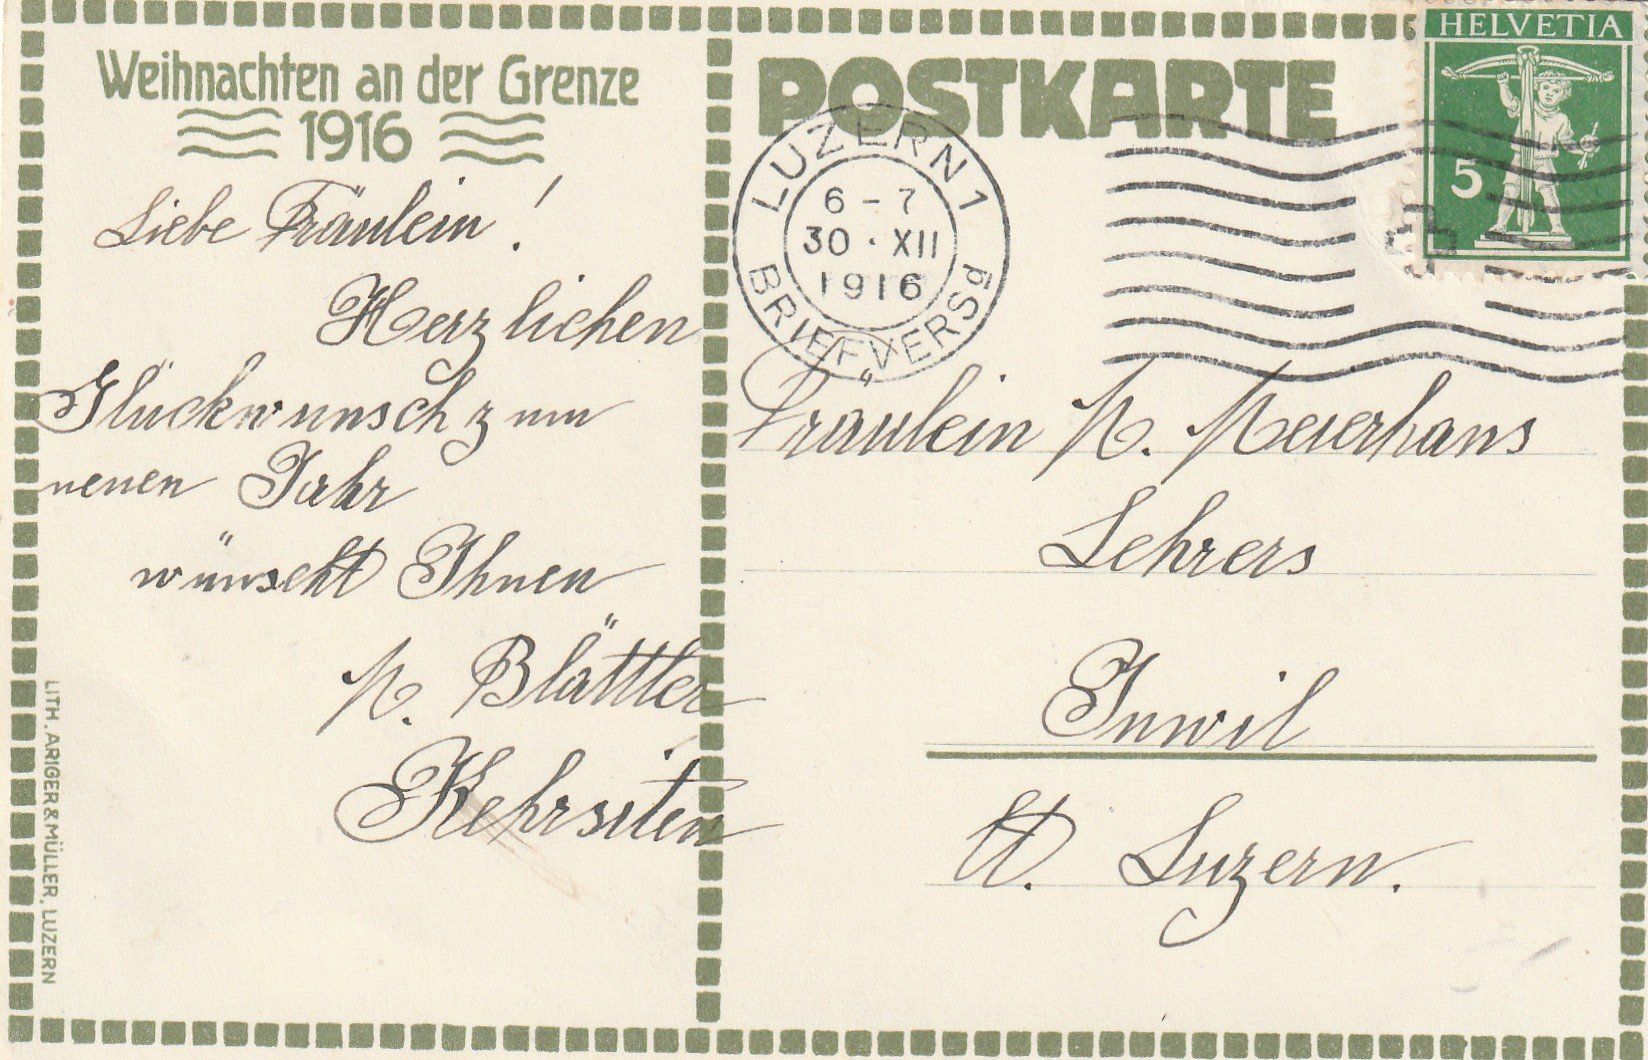 Weihnachten an der Grenze
1916
Liebe Fräulein!
Herzlichen
Glückwunsch zum
neuen Jahr
wünscht Ihnen
Blättler
Kehrsiten
LITH. ARIGER & MÜLLER, LUZERN
POSTKARTE
HELVETIA
5
LUZERN 1
6-7
30·XII
1916
BRIEFVERSd
Fräulein M. Meierhans
Lehrers
Inwil
Kt. Luzern.